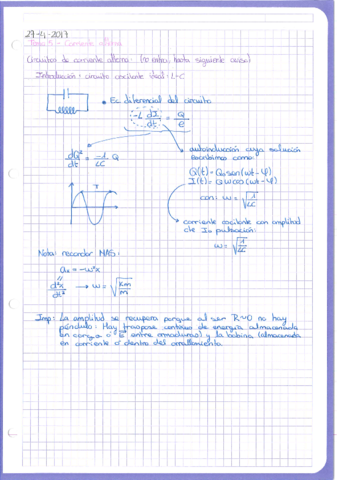 27-4-2017
Tema 5 - Corriente alterna
Circuitos de corriente alterna: (no entra, hasta siguiente aviso)
Introducción: circuito oscilante ideal: L-C
• Ec diferencial del circuito
-L dI/dt = Q/C
dQ²/dt = -1/LC Q
autoinducción cuya solución
escribimos como:
Q(t) = Q₀ sen(wt-φ)
I(t) = Qw cos(wt-φ)
con: w = √1/LC
T
corriente oscilante con amplitud
de I₀ pulsación:
w = √1/LC
Nota: recordar MAS:
aₓ = -w²x
d²x/dt² → w = √km/m
Imp: La amplitud se recupera porque al ser R≈0 no hay
pérdida. Hay traspase continuo de energía almacenada
en carga o E entre armaduras) y la bobina (almacenada
en corriente o dentro del arrollamiento.